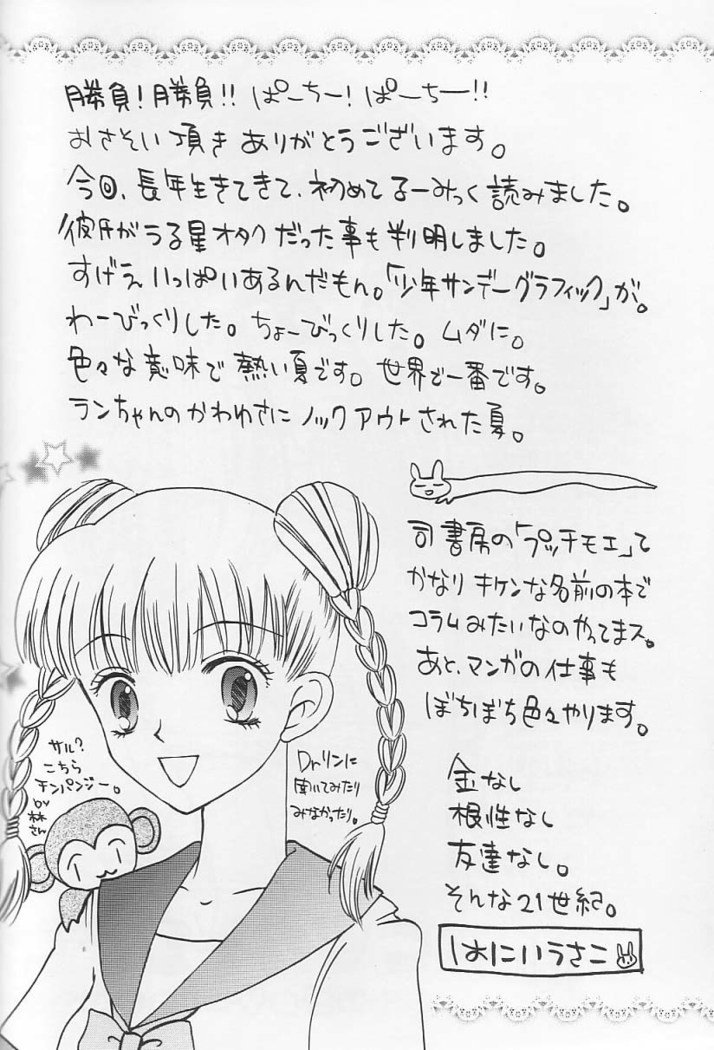 勝負！勝負！！ ぱーちー！ぱーちー！！
おさそい頂きありがとうございます。
今回、長年生きてきて、初めてるーみっく読みました。
彼氏がうる星オタクだった事も判明しました。
すげえいっぱいあるんだもん。「少年サンデーグラフィック」が。
わーびっくりした。ちょーびっくりした。ムダに。
色々な意味で熱い夏です。世界で一番です。
ランちゃんのかわゆさにノックアウトされた夏。
司書房の「プッチモエ」て
かなりキケンな名前の本で
コラムみたいなのやってまス。
あと、マンガの仕事も
ぼちぼち色々やります。
サル？
こちら
チンパンジー。
by
林さん
Drリンに
聞いてみたり
みなかったり。
金なし
根性なし
友達なし。
そんな21世紀。
はにいうさこ